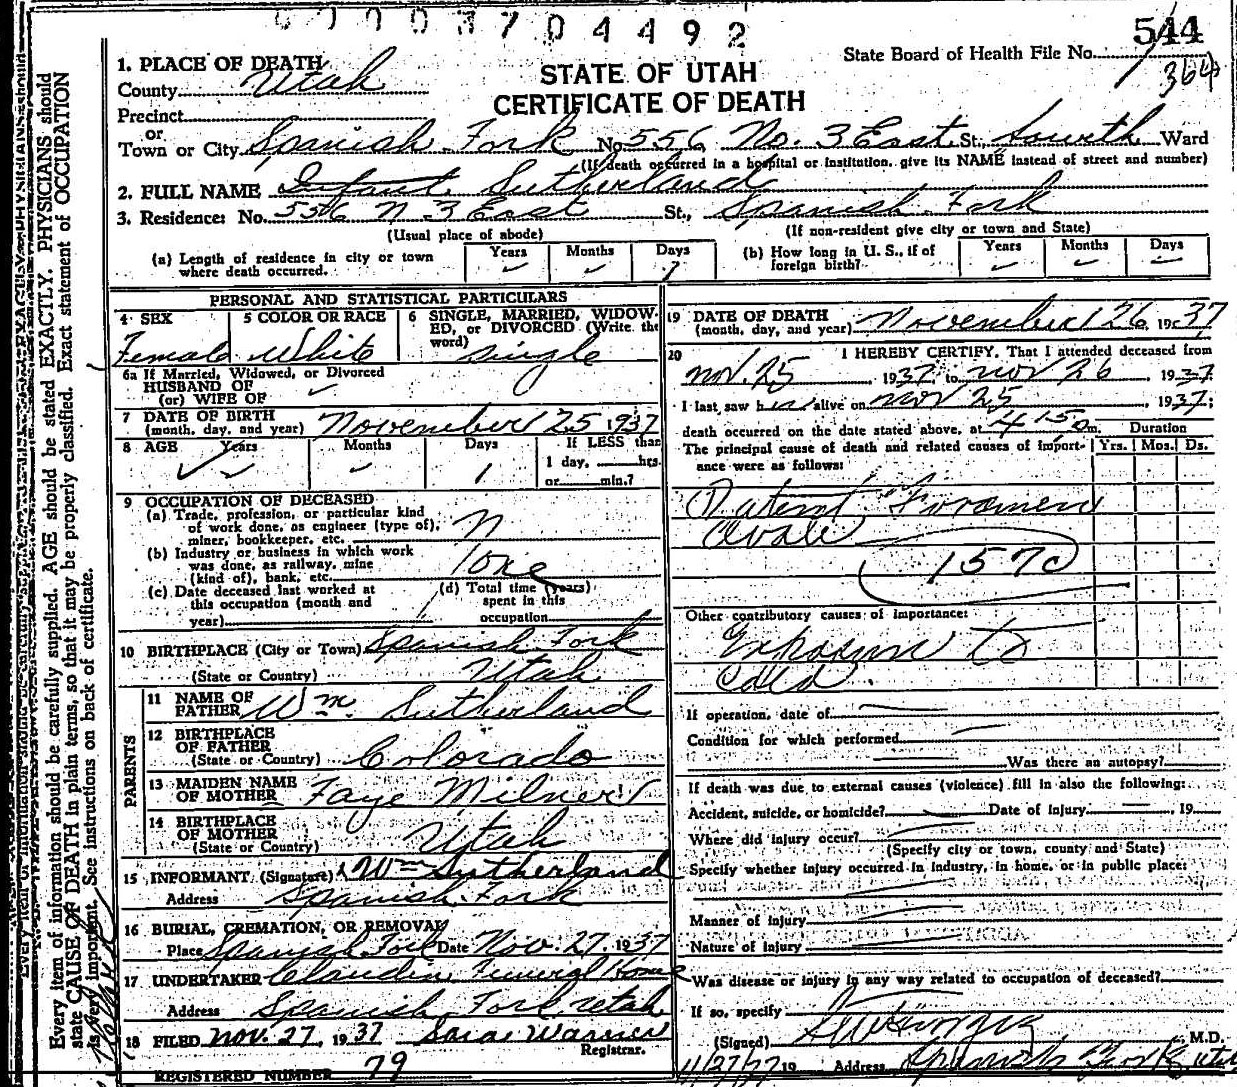 0003704492
544
State Board of Health File No.
364
STATE OF UTAH
CERTIFICATE OF DEATH
1. PLACE OF DEATH
County Utah
Precinct
or
Town or City Spanish Fork No. 556 No. 3 East St., Fourth Ward
(If death occurred in a hospital or institution, give its NAME instead of street and number)
2. FULL NAME Infant Sutherland
3. Residence: No. 556 N 3 East St., Spanish Fork
(Usual place of abode) (If non-resident give city or town and State)
(a) Length of residence in city or town where death occurred. Years Months Days 1
(b) How long in U. S., if of foreign birth? Years Months Days
PERSONAL AND STATISTICAL PARTICULARS
4 SEX Female
5 COLOR OR RACE White
6 SINGLE, MARRIED, WIDOWED, or DIVORCED (Write the word) Single
6a If Married, Widowed, or Divorced
HUSBAND OF
(or) WIFE OF
7 DATE OF BIRTH
(month, day, and year) November 25 1937
8 AGE Years Months Days 1
If LESS than
1 day, hrs.
or min.?
9 OCCUPATION OF DECEASED
(a) Trade, profession, or particular kind
of work done, as engineer (type of),
miner, bookkeeper, etc.
(b) Industry or business in which work
was done, as railway, mine
(kind of), bank, etc.
None
(c) Date deceased last worked at
this occupation (month and
year)
(d) Total time (years)
spent in this
occupation
10 BIRTHPLACE (City or Town) Spanish Fork
(State or Country) Utah
PARENTS
11 NAME OF
FATHER Wm. Sutherland
12 BIRTHPLACE
OF FATHER
(State or Country) Colorado
13 MAIDEN NAME
OF MOTHER Faye Milner
14 BIRTHPLACE
OF MOTHER
(State or Country) Utah
15 INFORMANT (Signature) Wm Sutherland
Address Spanish Fork
16 BURIAL, CREMATION, OR REMOVAL
Place Spanish Fork Date Nov. 27, 1937
17 UNDERTAKER Claudin Funeral Home
Address Spanish Fork Utah
18 FILED Nov. 27, 1937 Sara Warner
Registrar.
REGISTERED NUMBER 79
19 DATE OF DEATH
(month, day, and year) November 26, 1937
20 I HEREBY CERTIFY, That I attended deceased from
Nov. 25, 1937, to Nov 26, 1937.
I last saw her alive on Nov 25, 1937;
death occurred on the date stated above, at 4 15 m.
Duration
The principal cause of death and related causes of importance were as follows:
Yrs. Mos. Ds.
Patent Foramen
Ovale
157c
Other contributory causes of importance:
Exposure to
Cold.
If operation, date of
Condition for which performed
Was there an autopsy?
If death was due to external causes (violence) fill in also the following:
Accident, suicide, or homicide? Date of injury , 19
Where did injury occur?
(Specify city or town, county and State)
Specify whether injury occurred in industry, in home, or in public place:
Manner of injury
Nature of injury
Was disease or injury in any way related to occupation of deceased?
If so, specify
(Signed) M.D.
11/27/37 19 Address Spanish Fork, Utah
Every item of information should be carefully supplied. AGE should be stated EXACTLY. PHYSICIANS should
state CAUSE OF DEATH in plain terms, so that it may be properly classified. Exact statement of OCCUPATION
is very important. See instructions on back of certificate.